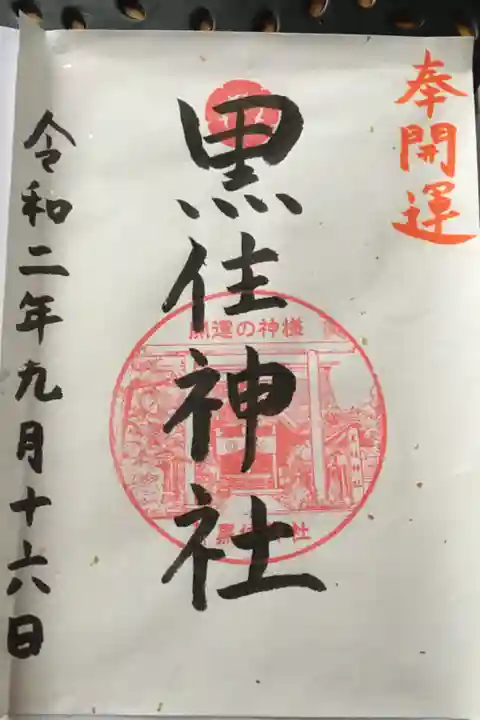 奉開運
黒住神社
開運の神様
黒住神社
令和二年九月十六日